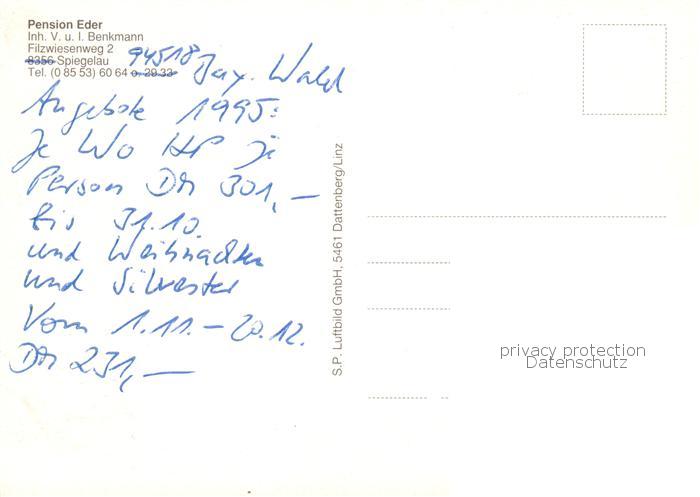 Pension Eder
Inh. V. u. I. Benkmann
Filzwiesenweg 2
8356 Spiegelau 94518 Bay. Wald
Tel. (0 85 53) 60 64 o. 29 33
Angebote 1995:
Je Wo HP je
Person DM 301,—
bis 31.10.
und Weihnachten
und Silvester
Vom 1.11. – 20.12.
DM 231,—
S.P. Luftbild GmbH, 5461 Dattenberg/Linz
privacy protection
Datenschutz